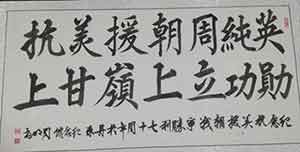 抗美援朝周純英
上甘嶺上立功勛
紀念抗美援朝
勝利七十周年於丹東